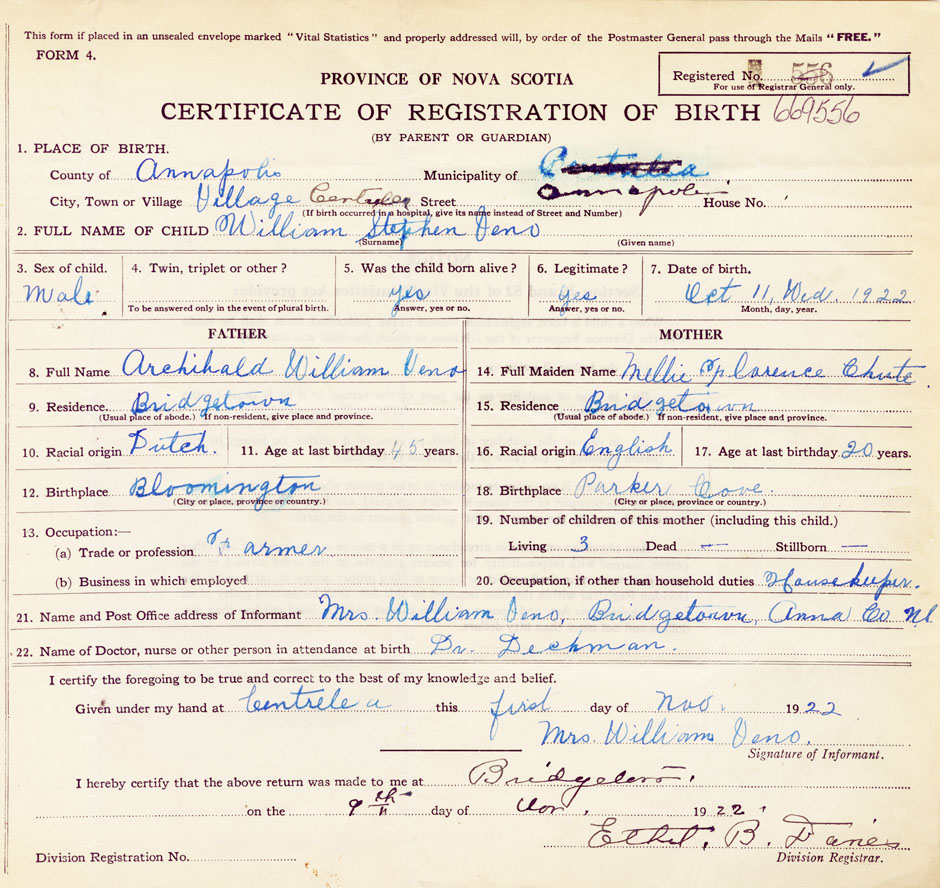 This form if placed in an unsealed envelope marked "Vital Statistics" and properly addressed will, by order of the Postmaster General pass through the Mails "FREE."
FORM 4.
PROVINCE OF NOVA SCOTIA
Registered No. 556
For use of Registrar General only.
CERTIFICATE OF REGISTRATION OF BIRTH 669556
(BY PARENT OR GUARDIAN)
1. PLACE OF BIRTH.
County of Annapolis Municipality of
Annapolis
City, Town or Village Village Street House No.
(If birth occurred in a hospital, give its name instead of Street and Number)
2. FULL NAME OF CHILD William Stephen Veno
(Surname) (Given name)
3. Sex of child. 4. Twin, triplet or other? 5. Was the child born alive? 6. Legitimate? 7. Date of birth.
Male yes Yes Oct 11, Wed. 1922
To be answered only in the event of plural birth. Answer, yes or no. Answer, yes or no. Month, day, year.
FATHER MOTHER
8. Full Name Archibald William Veno 14. Full Maiden Name Mellie Florence Chute
9. Residence. Bridgetown 15. Residence Bridgetown
(Usual place of abode.) If non-resident, give place and province. (Usual place of abode.) If non-resident, give place and province.
10. Racial origin Dutch. 11. Age at last birthday 45 years. 16. Racial origin English 17. Age at last birthday 20 years.
12. Birthplace Bloomington 18. Birthplace Parker Cove.
(City or place, province or country.) (City or place, province or country.)
13. Occupation:— 19. Number of children of this mother (including this child.)
(a) Trade or profession Farmer Living 3 Dead — Stillborn —
(b) Business in which employed 20. Occupation, if other than household duties Housekeeper.
21. Name and Post Office address of Informant Mrs. William Veno, Bridgetown, Anna Co N.S.
22. Name of Doctor, nurse or other person in attendance at birth Dr. Deckman.
I certify the foregoing to be true and correct to the best of my knowledge and belief.
Given under my hand at Centrelea this first day of Nov. 1922
Mrs. William Veno.
Signature of Informant.
I hereby certify that the above return was made to me at Bridgetown.
on the 9th day of Nov. 1922.
Ethel. B.
Division Registration No. Division Registrar.